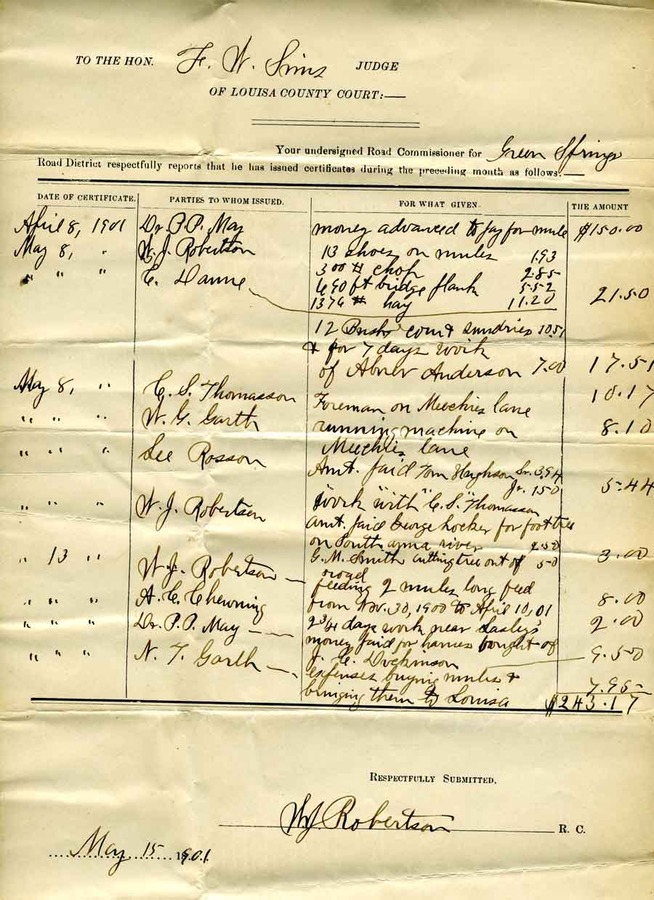 TO THE HON. F. W. Sims JUDGE
OF LOUISA COUNTY COURT:—
Your undersigned Road Commissioner for Green Springs
Road District respectfully reports that he has issued certificates during the preceding month as follows:—
DATE OF CERTIFICATE. PARTIES TO WHOM ISSUED. FOR WHAT GIVEN. THE AMOUNT
April 8, 1901 Dr. P. P. May money advanced to pay for mule $150.00
May 8, " W. J. Robertson 13 shoes on mules 1.93
" " " E. Danne 300 # chop 2.85
690 ft bridge plank 5.52
1376 # hay 11.20 21.50
12 Bush' corn & sundries 10.51
& for 7 days work
of Abner Anderson 7.00 17.51
May 8, " C. S. Thomasson Foreman on Meechies lane 10.17
" " " W. G. Garth running machine on 8.10
Meechies lane
" " " Lee Rosson Amt. paid Tom Hughson Sr. 3.94
Jr. 1.50 5.44
work with "C. S." Thomasson
" " " W. J. Robertson amt. paid George hocker for foot tree
on South anna river 2.50
G. M. Smith cutting tree out of 50 3.00
road
" 13 " W. J. Robertson — feeding 2 mules long feed
from Nov. 30, 1900 to April 10, 01 8.00
" " " A. C. Chewning 2 3/4 days work near Lasley's 2.00
" " " Dr. P. P. May — money paid for harness bought of
J. C. Dickinson 9.50
" " " N. T. Garth — expenses buying mules &
bringing them to Louisa 7.95
$243.17
RESPECTFULLY SUBMITTED,
W J Robertson R. C.
May 15 1901